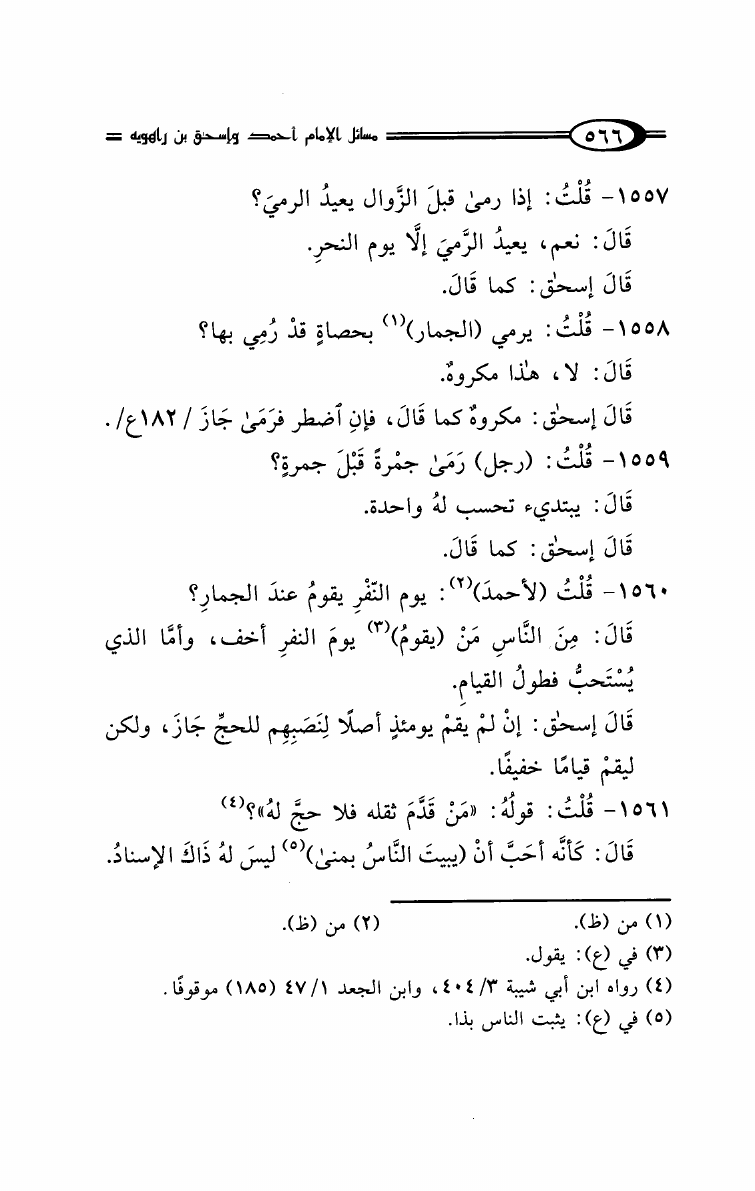 ٥٦٦ مسائل الإمام أحمد وإسحق بن راهويه
١٥٥٧- قُلْتُ: إذا رمىٰ قبلَ الزَّوال يعيدُ الرميَ؟
قَالَ: نعم، يعيدُ الرَّميَ إلَّا يوم النحرِ.
قَالَ إسحٰق: كما قَالَ.
١٥٥٨- قُلْتُ: يرمي (الجمار)(١) بحصاةٍ قدْ رُمِي بها؟
قَالَ: لا، هٰذا مكروهٌ.
قَالَ إسحٰق: مكروهٌ كما قَالَ، فإنِ ٱضطر فرَمَىٰ جَازَ /١٨٢ع/.
١٥٥٩- قُلْتُ: (رجل) رَمَىٰ جمْرةً قَبْلَ جمرةٍ؟
قَالَ: يبتديء تحسب لهُ واحدة.
قَالَ إسحٰق: كما قَالَ.
١٥٦٠- قُلْتُ (لأحمدَ)(٢): يوم النّفْرِ يقومُ عندَ الجمارِ؟
قَالَ: مِنَ النَّاسِ مَنْ (يقومُ)(٣) يومَ النفرِ أخف، وأمَّا الذي
يُسْتَحبُّ فطولُ القيامِ.
قَالَ إسحٰق: إنْ لمْ يقمْ يومئذٍ أصلًا لِنَصَبِهِم للحجِّ جَازَ، ولكن
ليقمْ قيامًا خفيفًا.
١٥٦١- قُلْتُ: قولُهُ: «مَنْ قَدَّمَ ثقله فلا حجَّ لهُ»؟(٤)
قَالَ: كَأنَّه أحَبَّ أنْ (يبيتَ النَّاسُ بمنىٰ)(٥) ليسَ لهُ ذَاكَ الإسنادُ.
(١) من (ظ). (٢) من (ظ).
(٣) في (ع): يقول.
(٤) رواه ابن أبي شيبة ٣/ ٤٠٤، وابن الجعد ١/ ٤٧ (١٨٥) موقوفًا.
(٥) في (ع): يثبت الناس بذا.